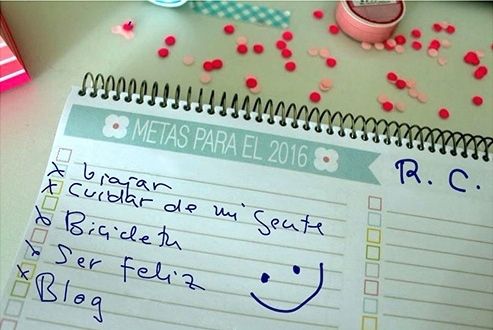 METAS PARA EL 2016
R. C.
x Viajar
x Cuidar de mi gente
x Bicicleta
x Ser feliz
x Blog